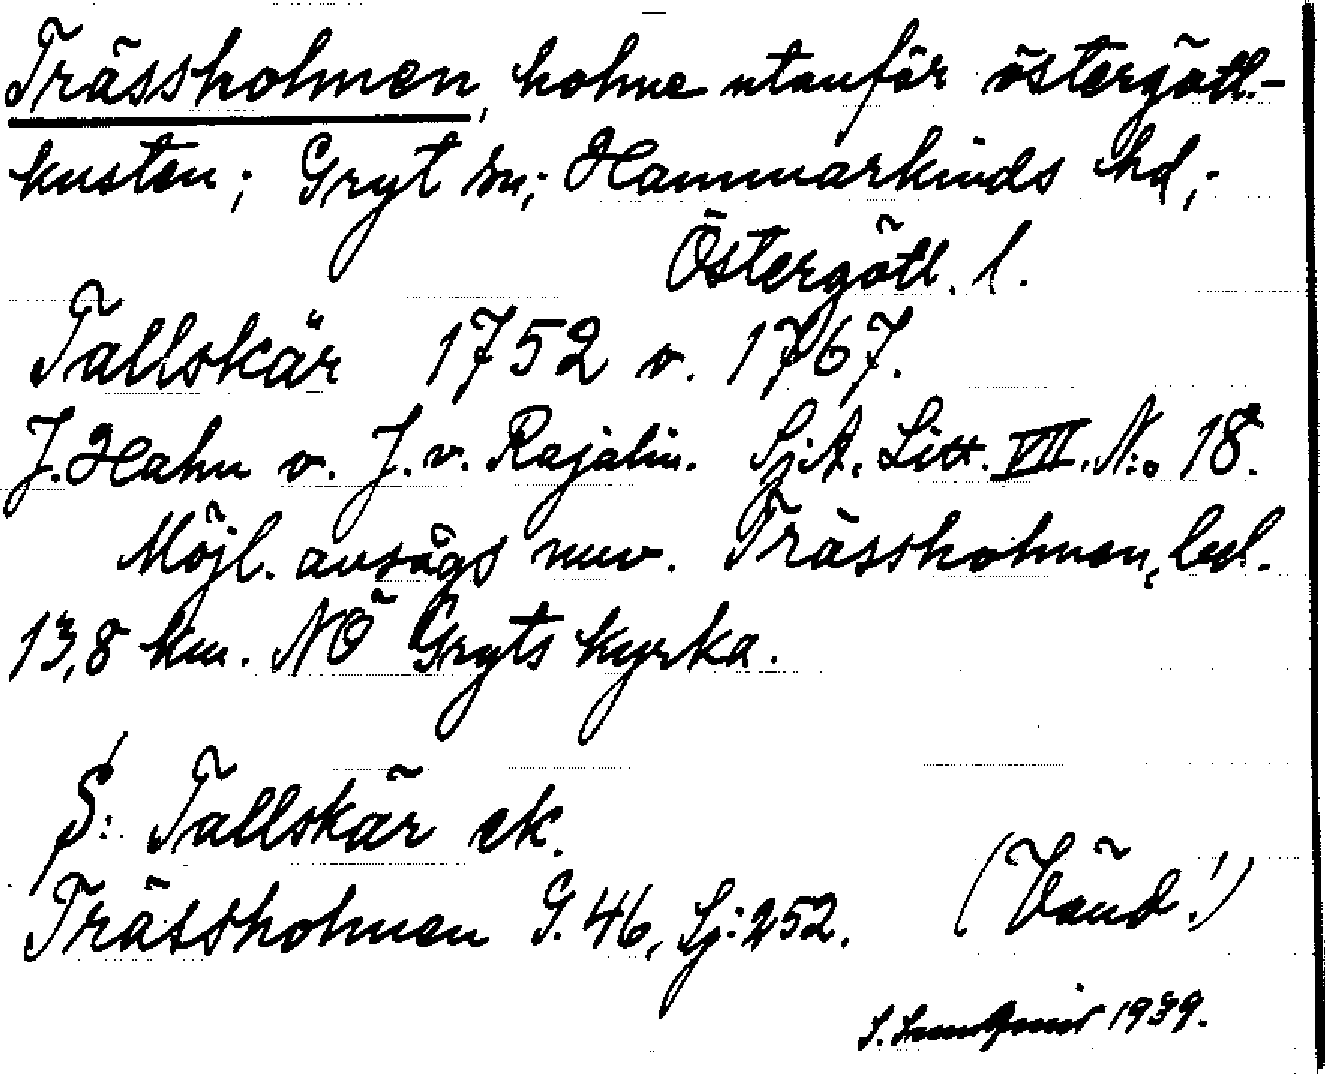 Trässholmen, holme utanför östergötl.-
kusten; Gryt sn; Hammarkinds hd;
Östergötl. l.
Tallskär 1752 o. 1767.
J. Hahn o. J. v. Rajalin. Sj.A. Litt. VII. No. 18.
Möjl. avsågs nuv. Trässholmen, bel.
13,8 km. NÖ Gryts kyrka.
S: Tallskär ek.
Trässholmen G. 46, Sj: 252. (Vänd!)
1939.